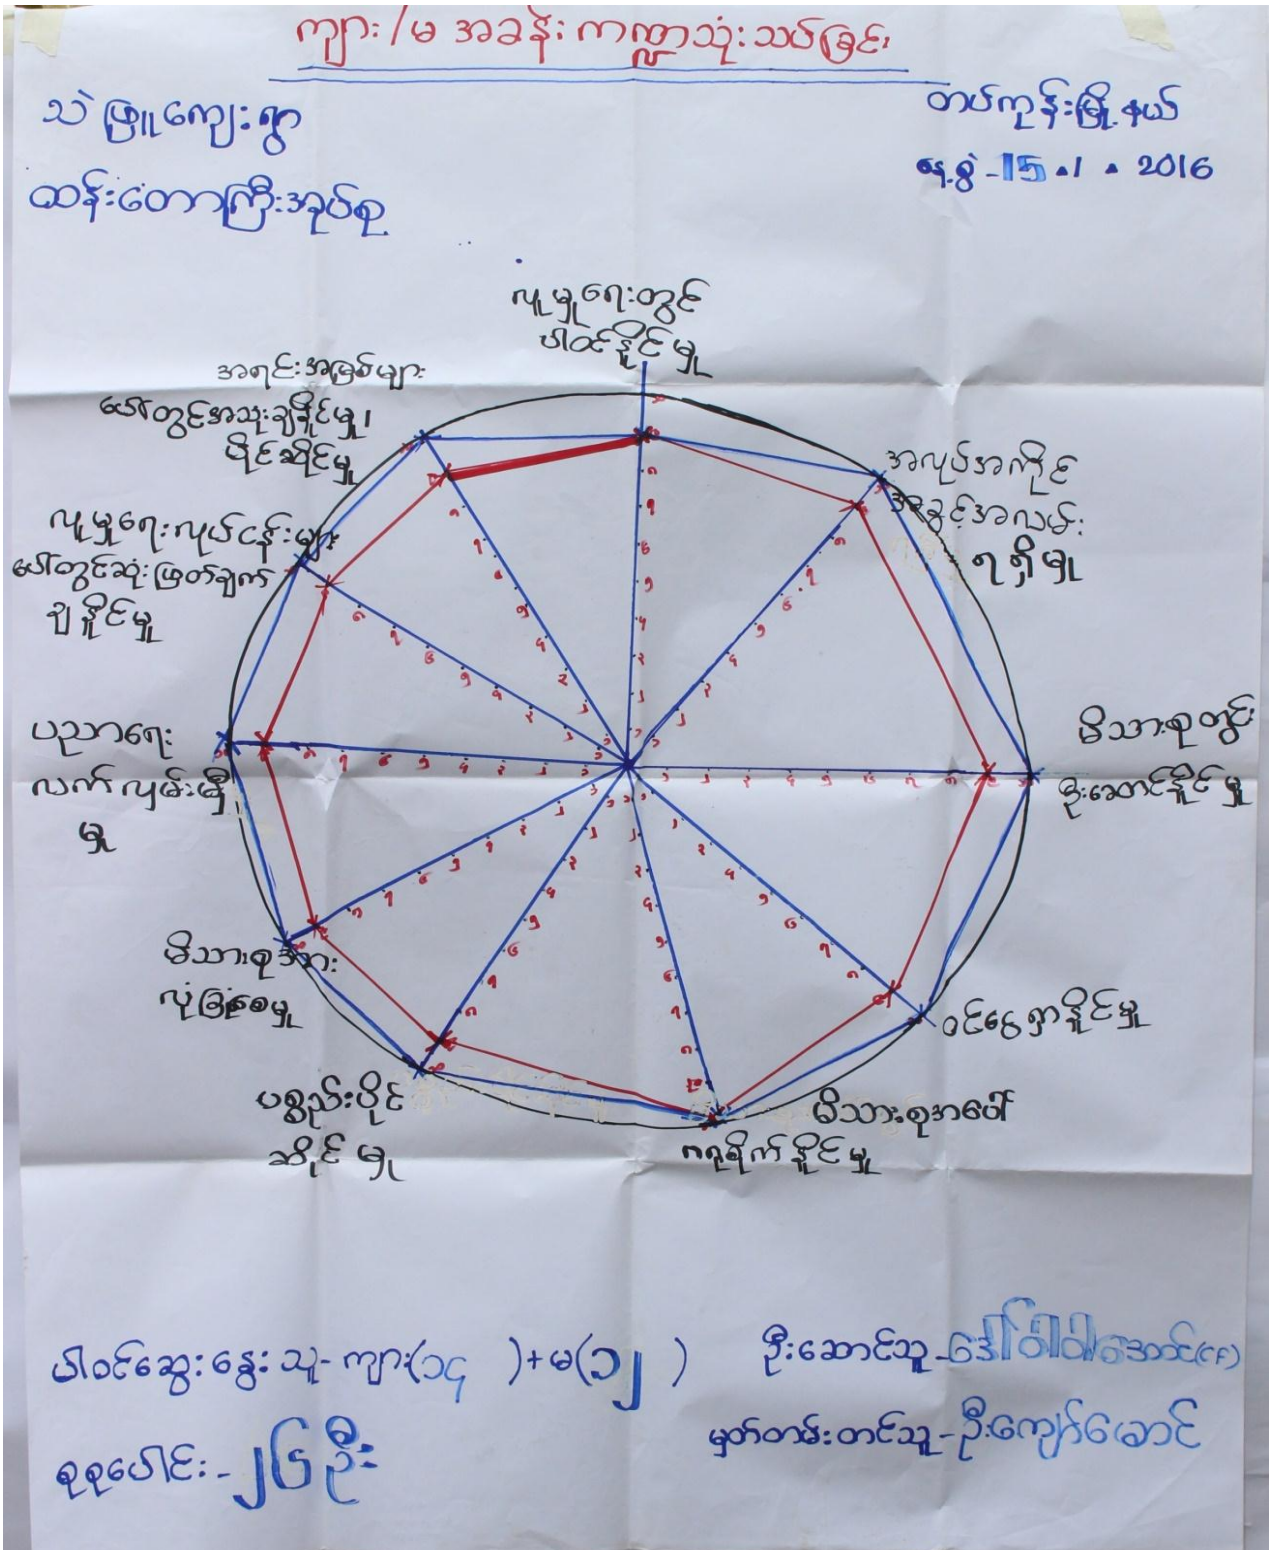 ကျား/မ အခန်းကဏ္ဍသုံးသပ်ခြင်း
သဲဖြူကျေးရွာ
ထန်းတောကြီးအုပ်စု
တပ်ကုန်းမြို့နယ်
နေ့စွဲ - 15.1.2016
လူမှုရေးတွင်
ပါဝင်နိုင်မှု
အလုပ်အကိုင်
အခွင့်အလမ်း
ရရှိမှု
မိသားစုတွင်
ဦးဆောင်နိုင်မှု
ဝင်ငွေရှာနိုင်မှု
မိသားစုအပေါ်
ဂရုစိုက်နိုင်မှု
ပစ္စည်းပိုင်
ဆိုင်မှု
မိသားစုအား
လုံခြုံစေမှု
ပညာရေး
လက်လှမ်းမှီ
မှု
လူမှုရေးလုပ်ငန်းများ
ပေါ်တွင်ဆုံးဖြတ်ချက်
ချနိုင်မှု
အရင်းအမြစ်များ
ပေါ်တွင်အသုံးချနိုင်မှု၊
ပိုင်ဆိုင်မှု
ပါဝင်ဆွေးနွေးသူ - ကျား(၁၄ )+မ(၁၂ )
စုစုပေါင်း - ၂၆ဦး
ဦးဆောင်သူ - ဒေါ်ဝါဝါအောင်(CF)
မှတ်တမ်းတင်သူ - ဦးကျော်မောင်